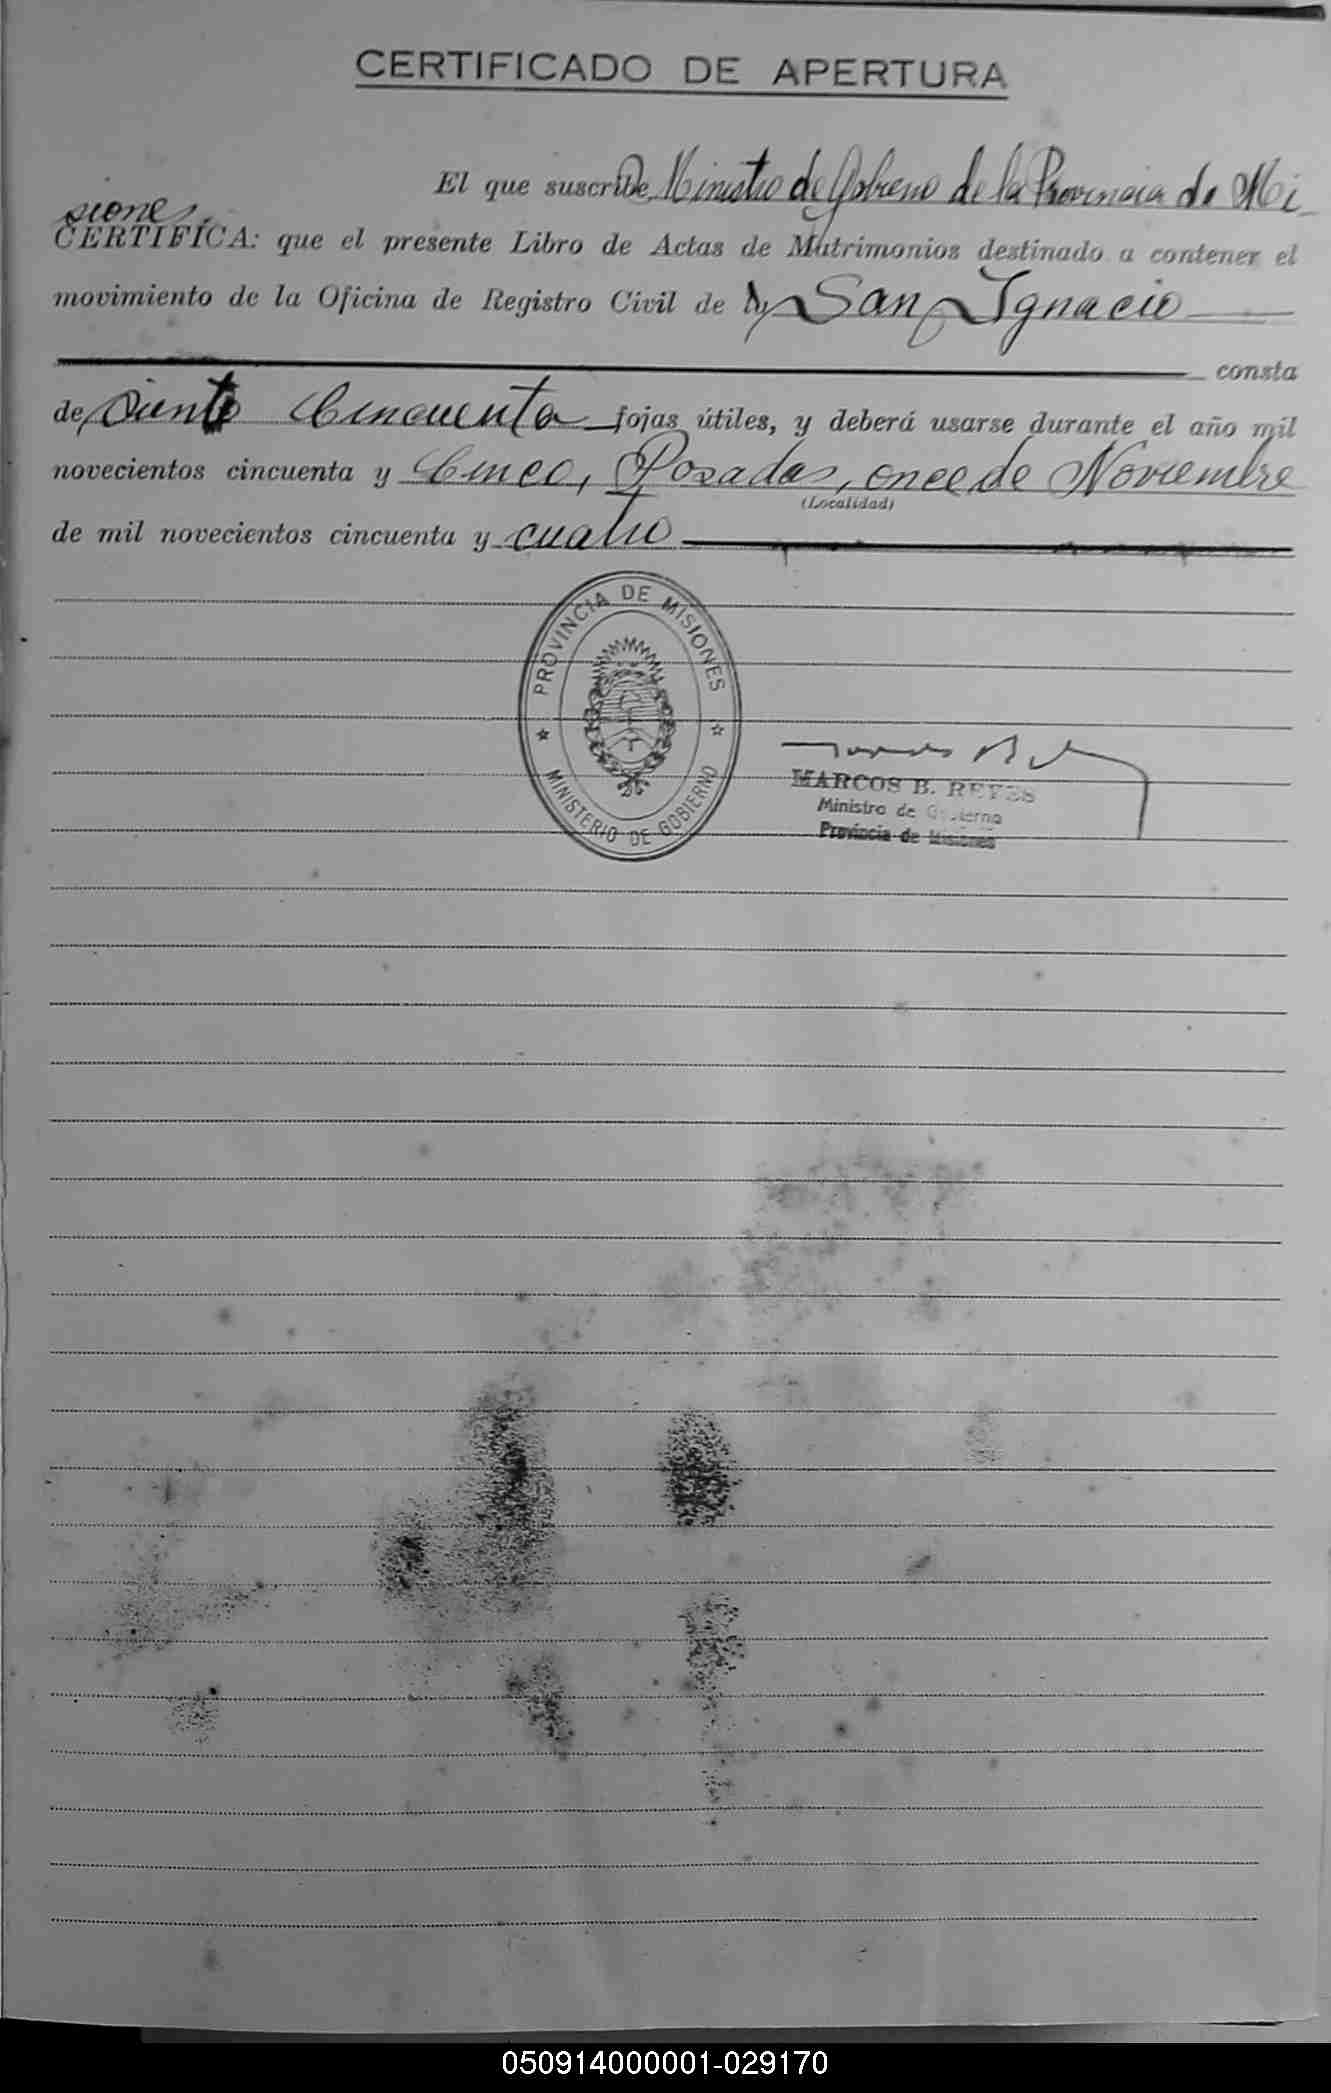 CERTIFICADO DE APERTURA
El que suscribe, Ministro de Gobierno de la Provincia de Mi
siones,
CERTIFICA: que el presente Libro de Actas de Matrimonios destinado a contener el
movimiento de la Oficina de Registro Civil de San Ignacio
consta
de, Siento Cincuenta fojas útiles, y deberá usarse durante el año mil
novecientos cincuenta y Cinco, Posadas, once de Noviembre
(Localidad)
de mil novecientos cincuenta y cuatro
PROVINCIA DE MISIONES
MINISTERIO DE GOBIERNO
MARCOS B. REYES
Ministro de Gobierno
Provincia de Misiones
050914000001-029170